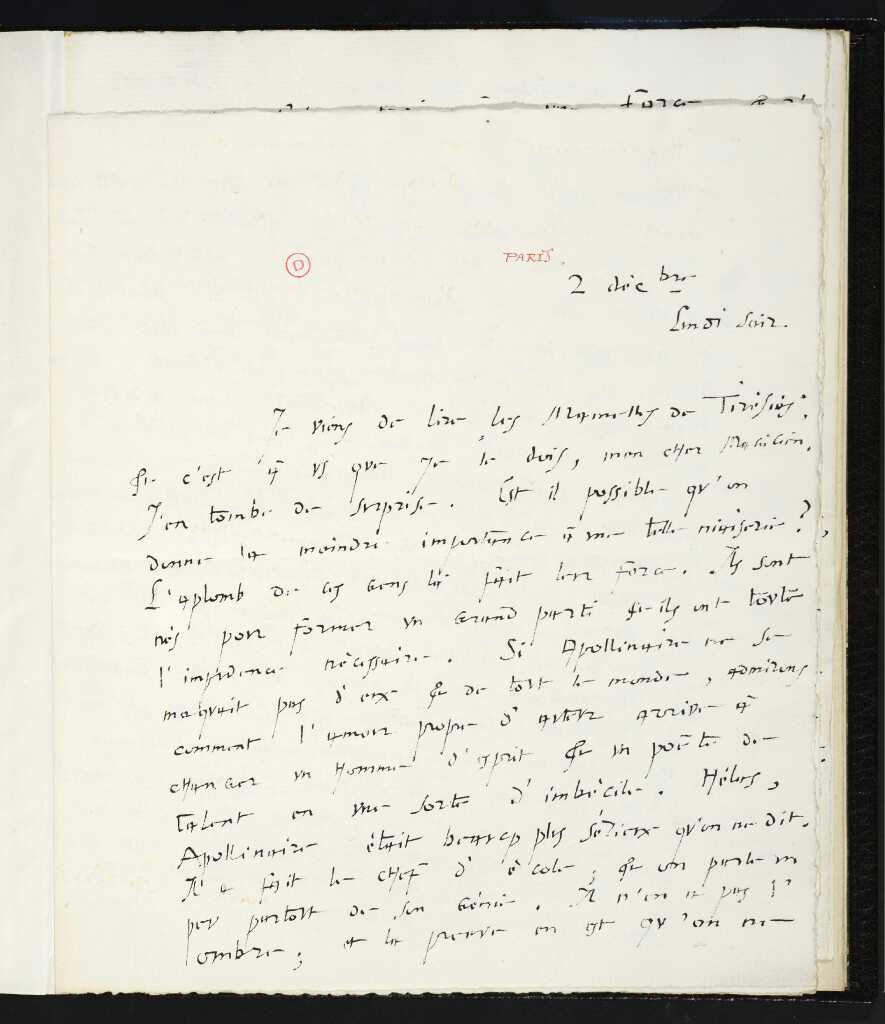 D
PARIS
2 décbre
Lundi soir.
Je viens de lire les Mamelles de Tirésias,
& c'est à vs que je le dois, mon cher Musicien.
J'en tombe de surprise. Est il possible qu'on
donne la moindre importance à une telle niaiserie?
L'aplomb de ces gens là fait leur force. Ils sont
nés pour former un grand parti & ils ont toute
l'impudence nécessaire. Si Apollinaire ne se
moquait pas d'eux & de tout le monde, admirons
comment l'amour propre d'auteur arrive à
changer un homme d'esprit & un poète de
talent en une sorte d'imbécile. Hélas,
Apollinaire était beaucp plus sérieux qu'on ne dit.
Il a fait le chef d'école, & on parle un
peu partout de son génie. Il n'en a pas l'
ombre; et la preuve en est qu'on me